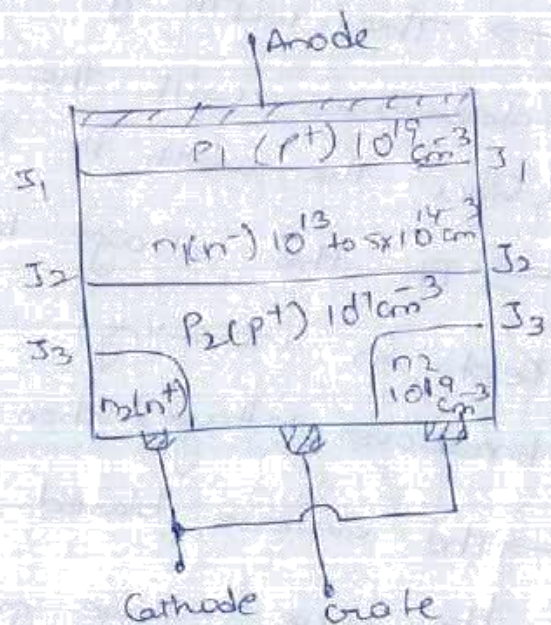 Anode
P1 (p+) 10^19 cm^-3
J1 J1
n1(n-) 10^13 to 5x10^14 cm^-3
J2 J2
P2(p+) 10^17 cm^-3
J3 J3
n2(n+) n2
10^19
cm^-3
Cathode Gate